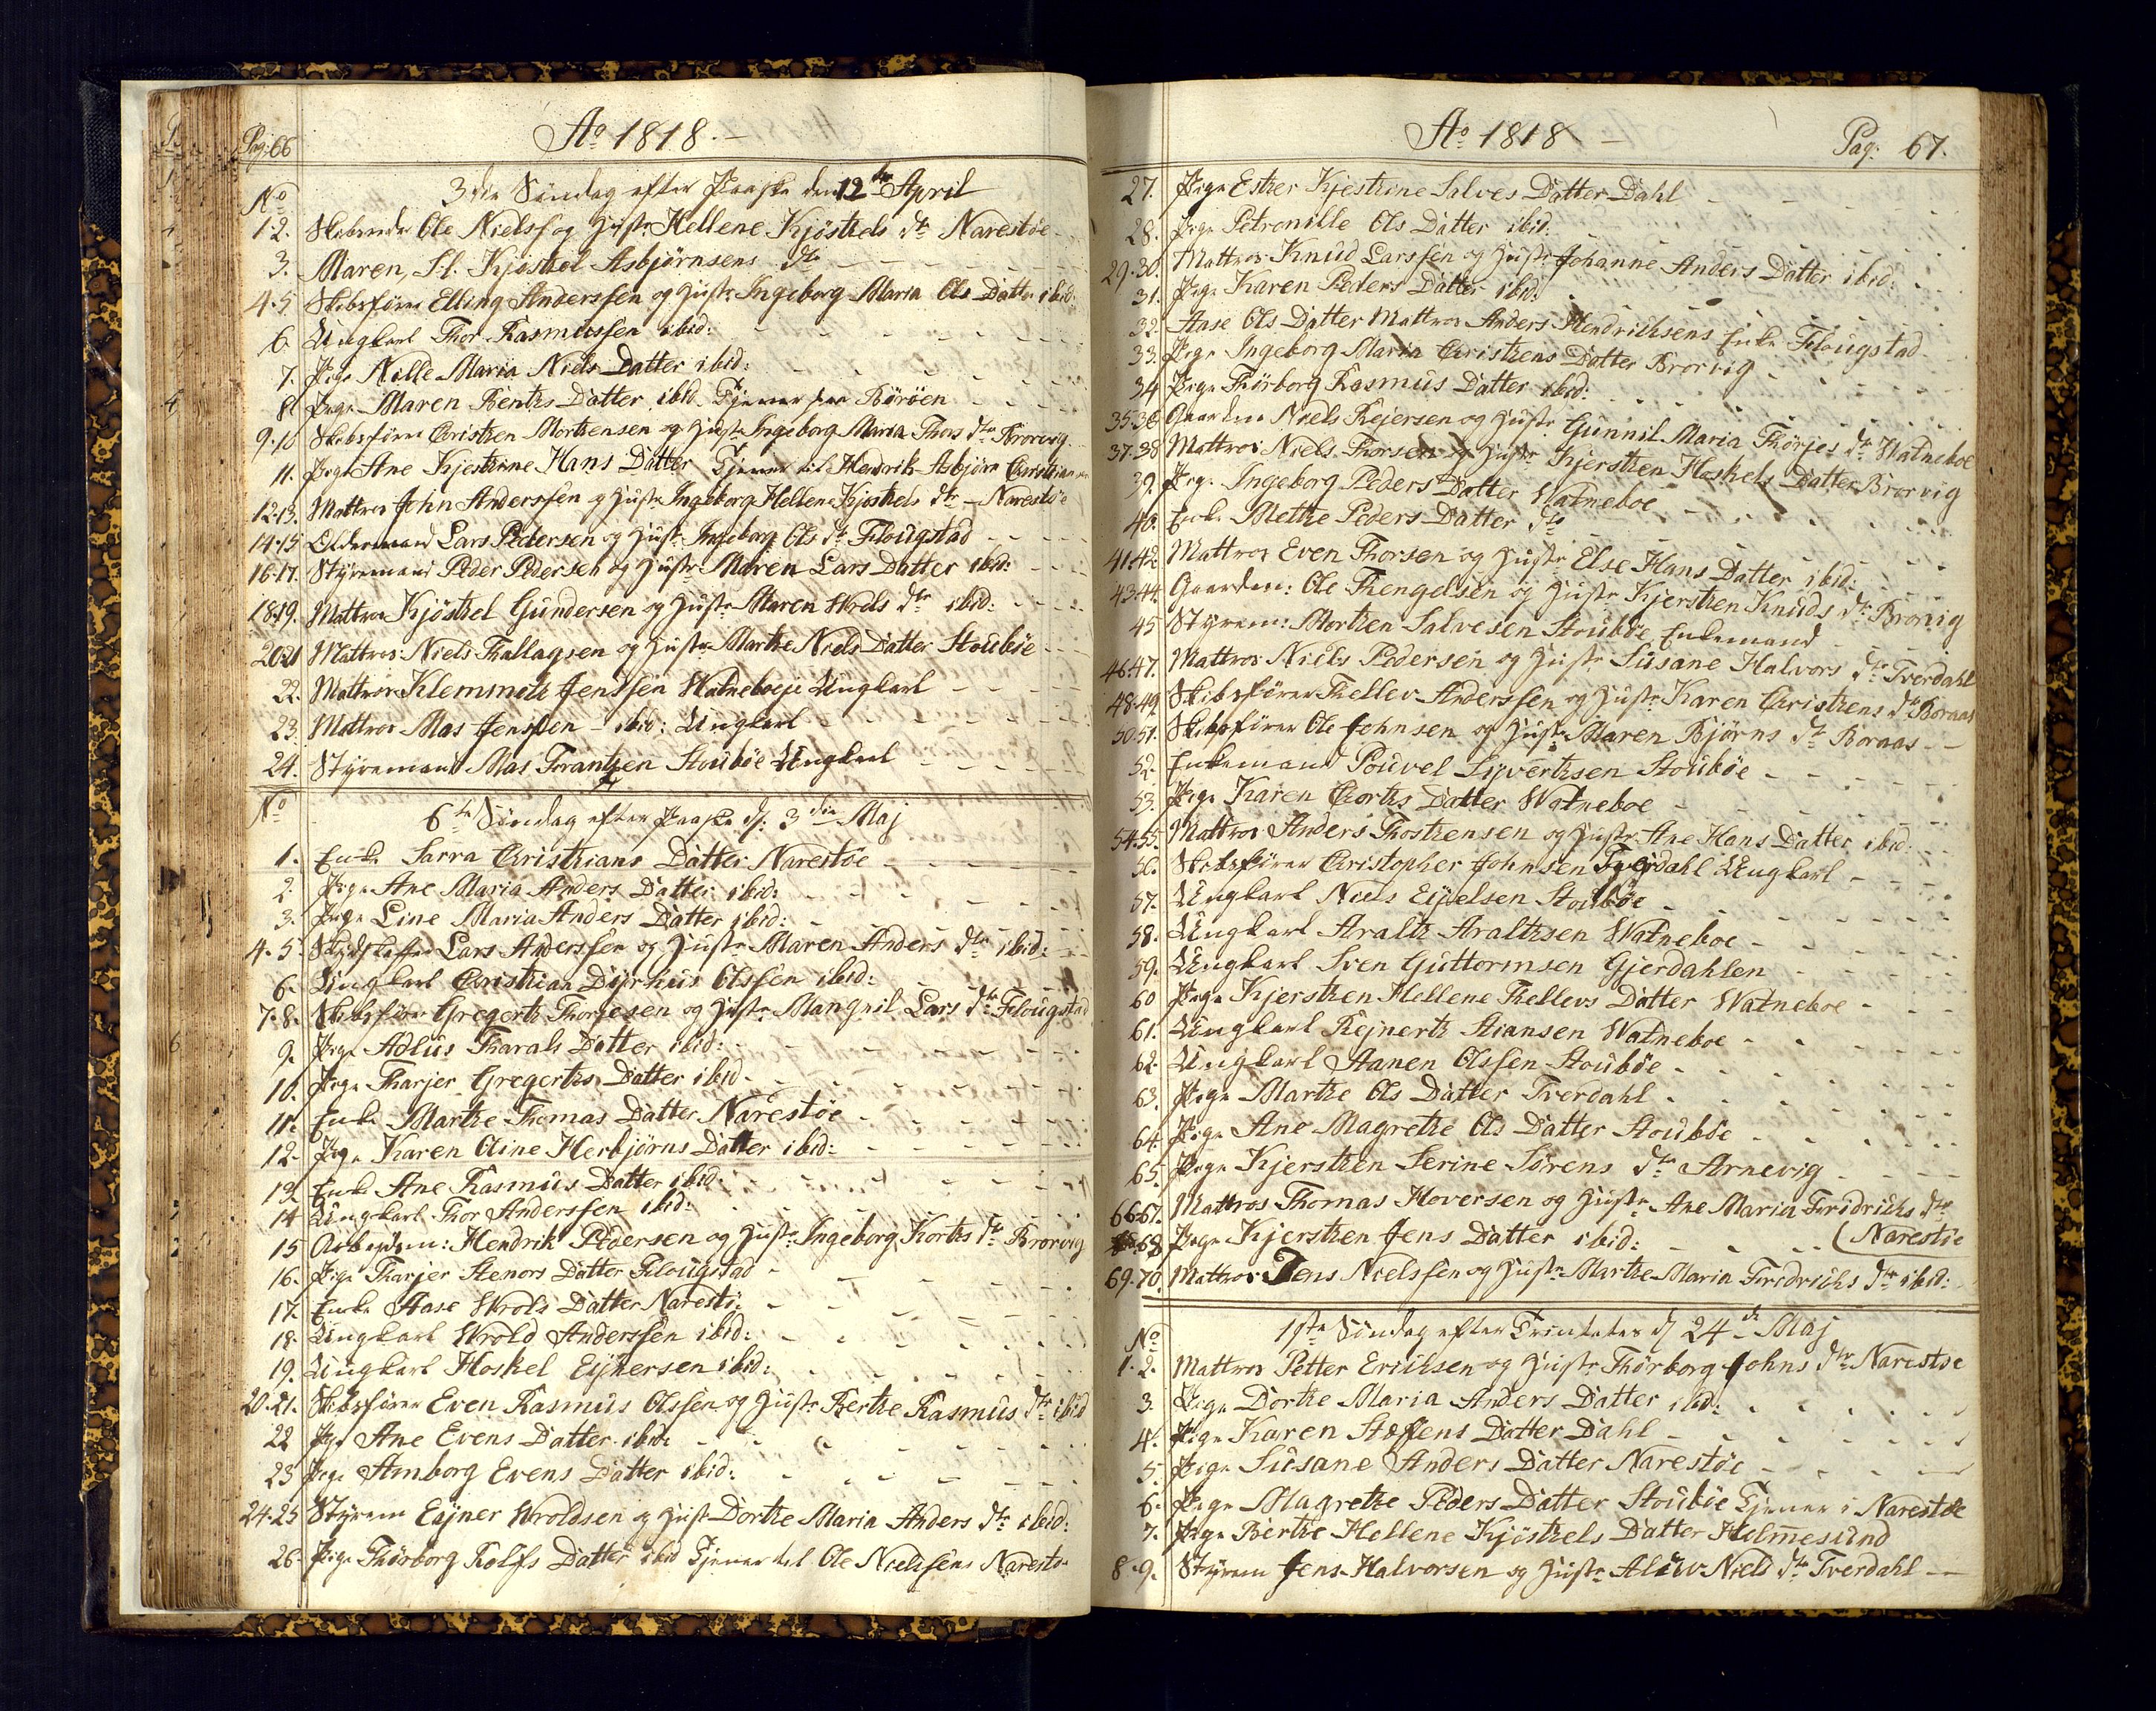 Pag: 66
Ao 1818.
3die Söndag efter Paaske den 12te April
No
1.2. Skibsreder Ole Nielss og Hustr Hellene Kjöstels dtr Narestöe
3. Maren, Sl. Kjöstel Asbjörnsens dtr
4.5 Skibsförer Elling Anderssen og Hustr Ingeborg Maria Ols Datter ibid:
6. Ungkarl Thor Rasmussen ibid:
7. Pige Nille Maria Niels Datter ibid:
8. Pige Maren Bentts Datter ibid. Tjener paa Böröen
9.10 Skibsförer Christen Mortensen og Hustr Ingeborg Maria Thors dtr Brorvig
11. Pige Ane Kjestine Hans Datter Tjener til Hendrik Asbjörn
12.13. Mattros John Anderssen og Hustr Ingeborg Hellene Kjöstels dtr Narestöe
14.15 Oldermand Lars Pedersen og Hustr Ingeborg Ols dtr Flougstad
16.17. Styremand Peder Pedersen og Hustr Maren Lars Datter ibid:
18.19. Mattros Kjöstel Gundersen og Hustr Maren Wrols dtr ibid:
20.21 Mattros Niels Tallagsen og Hustr Marthe Niels Datter Stouböe
22. Mattros Klemmet Jenssen Watneboe Ungkarl
23. Mattros Mas Jenssen ibid: Ungkarl
24. Styremand Mas Frantzen Stouböe Ungkarl
No
6te Söndag efter Paaske d: 3die Maj
1. Enke Sarra Christians Datter Narestöe
2. Pige Ane Maria Anders Datter ibid:
3. Pige Line Maria Anders Datter ibid:
4.5. Skydskaffer Lars Anderssen og Hustr Maren Anders dtr ibid:
6. Ungkarl Christian Dyrhus Olssen ibid:
7.8. Skibsförer Gregert Thorjesen og Hustr Mangnil Lars dtr Flougstad
9. Pige Adlus Tharals Datter ibid:
10. Pige Tharjer Gregerts Datter ibid
11. Enke Marthe Thomas Datter Narestöe
12. Pige Karen Oline Herbjörns Datter ibid:
13 Enke Ane Rasmus Datter ibid:
14 Ungkarl Thor Anderssen ibid:
15 Arbejdsm: Hendrik Pedersen og Hustr: Ingeborg Korts dtr Brorvig
16. Pige Tharjer Stenors Datter Flougstad
17. Enke Aase Wrols Datter Narestö:
18. Ungkarl Wrold Anderssen ibid:
19. Ungkarl Hoskel Eynersen ibid:
20.21. Skibsförer Even Rasmus Olssen og Hustr Berthe Rasmus dtr ibid
22 Pige Ane Evens Datter ibid:
23 Pige Amborg Evens Datter ibid:
24.25 Styrem Eyner Wroldsen og Hustr Dorthe Maria Anders dtr ibid:
26. Pige Thörborg Rolfs Datter ibid Tjener til Ole Nielssens Naresto
Ao 1818
Pag: 67.
27. Pige Ester Kjestine Salves Datter Dahl
28. Pige Petronille Ols Datter ibid:
29.30. Mattros Knud Larssen og Hustr Johanne Anders Datter ibid:
31. Pige Karen Peders Datter ibid:
32. Aase Ols Datter Mattros Anders Hendrichsens Enke Flougstad
33. Pige Ingeborg Maria Christens Datter Brorvig
34 Pige Thörborg Rasmus Datter ibid:
35.36 Gaardm Niels Rejersen og Hustr Gunnil Maria Thörjes dtr Watneboe
37.38 Mattros Niels Thorsen og Hustr Kjersten Hoskels Datter Brorvig
39. Pige Ingeborg Peders Datter Watneboe
40. Enke Mette Peders Datter dto
41.42 Mattros Even Thorsen og Hustr Else Hans Datter ibid:
43.44. Gaardm: Ole Thengelsen og Hustr Kjersten Knuds dtr Brorvig
45 Styrem: Morten Salvesen Stouböe Enkemand
46.47. Mattros Niels Pedersen og Hustr Susane Halvors dtr Tverdahl
48.49. Skibsförer Tellev Anderssen og Hustr Karen Christens dtr Boraas
50.51. Skibsförer Ole Johnsen og Hustr Maren Bjorns dtr Boraas
52. Enkemand Pouvel Syvertsen Stouböe
53. Pige Karen Corts Datter Watneboe
54.55. Mattros Anders Thostensen og Hustr Ane Hans Datter ibid:
56. Skibsförer Christopher Johnsen Tverdahl Ungkarl
57. Ungkarl Niels Eyelsen Stouböe
58. Ungkarl Aralt Araltsen Watneboe
59. Ungkarl Sven Guttormsen Gjerdahlen
60 Pige Kjersten Hellene Tellevs Datter Watneboe
61. Ungkarl Rejnert Stiansen Watneboe
62. Ungkarl Aanen Olssen Stouböe
63. Pige Marthe Ols Datter Tverdahl
64. Pige Ane Magrethe Ols Datter Stouböe
65. Pige Kjersten Serine Sörens dtr Arnevig
66.67. Mattros Thomas Hoversen og Hustr Ane Maria Fridrichs dtr
68 Pige Kjersten Jens Datter ibid: (Narestöe
69.70. Mattros Jens Nielssen og Hustr Marthe Maria Fridrichs dtr ibid:
1ste Söndag efter Trinitatis d 24de Maj
No
1.2. Mattros Petter Erichsen og Hustr Thörborg Johns dtr Narestoe
3. Pige Dorthe Maria Anders Datter ibid:
4. Pige Karen Steffens Datter Dahl
5. Pige Susane Anders Datter Narestöe
6. Pige Magrethe Peders Datter Stouböe Tjener i Narestöe
7. Pige Berthe Hellene Kjöstels Datter Holmesund
8.9. Styrem Jens Halvorsen og Hustr Niels dtr Tverdahl